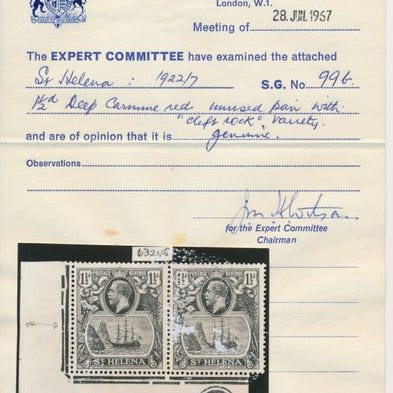 London, W.1.
Meeting of 28 JUN. 1967
The EXPERT COMMITTEE have examined the attached
St Helena : 1922/7 S.G. No 99b
1½d Deep Carmine red unused pair with
"cleft rock" variety.
and are of opinion that it is genuine.
Observations
for the Expert Committee
Chairman
63215
1½d POSTAGE & REVENUE 1½d 1½d POSTAGE & REVENUE 1½d
ST HELENA ST HELENA